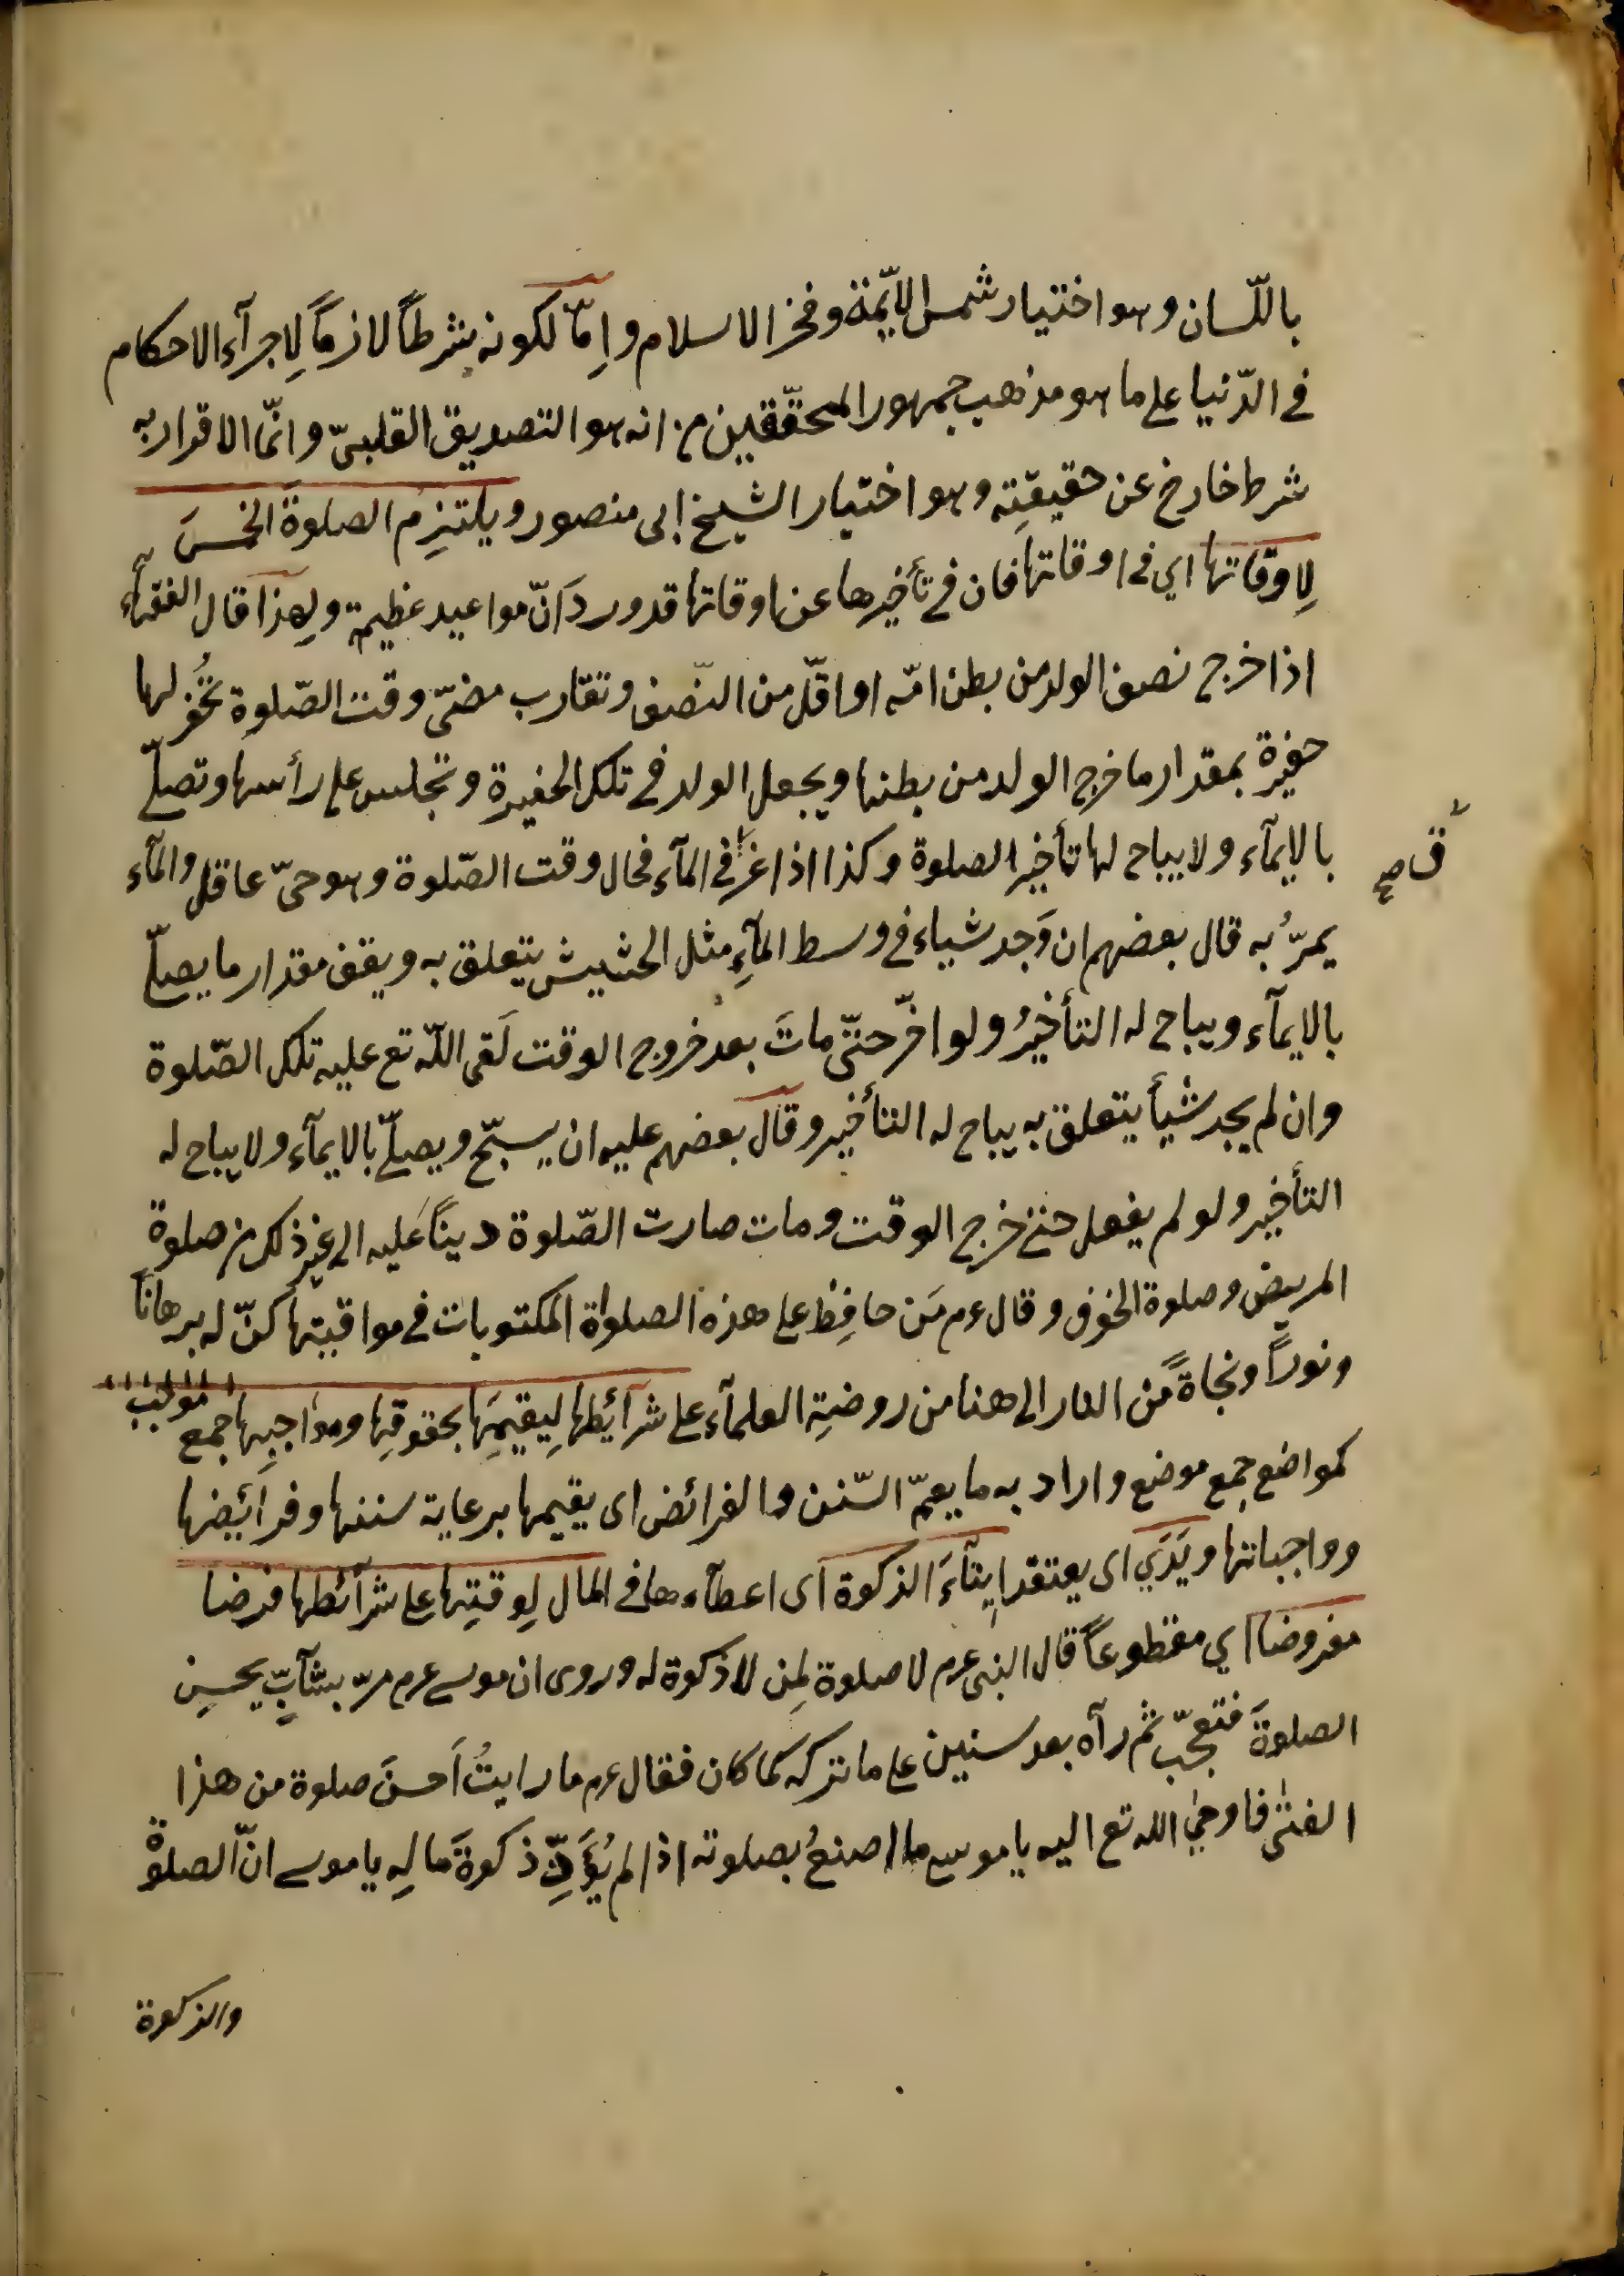 باللّسان وهو اختيار شمس الايّمة وفخر الاسلام وامّا لكونه شرطاً لازماً لِاجرآء الاحكام
فى الدّنيا على ما هو مذهب جمهور المحقّقين من انه هو التصديق القلبىّ وانّما الاقرار به
شرط خارج عن حقيقتِه وهو اختيار الشيخ ابى منصور ويلتزِم الصلوةَ الخمسَ
لِاوقاتها اي فى اوقاتها فان فى تأخيرها عن اوقاتها قد ورد انّ مواعيد عظيمة ولهذا قال الفقهآء
اذا خرج نصف الولد من بطن امّه او اقلّ من النّصف وتقارب مضىّ وقت الصّلوة تُحفر لها
حفيرة بمقدار ما خرج الولد من بطنها ويجعل الولد فى تلك الحفيرة وتجلس على رأسها وتصلّى
بالايمآء ولا يباح لها تأخير الصلوة وكذا اذا غر فى المآء فحال وقت الصّلوة وهو حىّ عاقل والمآء
ق صح
يمرُّ به قال بعضهم ان وَجد شياء فى وسط المآءِ مثل الحشيش يتعلق به ويقف مقدار ما يصلّى
بالايمآء ويباح له التأخيرُ ولو اخّر حتّى ماتَ بعد خروج الوقت لَقى اللّه تع عليه تلك الصّلوة
وان لم يجد شيأ يتعلق به يباح له التأخير وقال بعضهم عليه ان يسبّح ويصلّى بالايمآء ولا يباح له
التأخير ولو لم يفعل حتى خرج الوقت ومات صارت الصّلوة ديناً عليه الى غير ذلك من صلوة
المريض وصلوة الخوف وقال عم مَن حافِظ على هذه الصلواة المكتوبات فى مواقيتها كنّ له برهاناً
ونوراً ونجاةً من النار الى هنا من روضةِ العلمآء على شرآئطها لِيقيمَها بحقوقِها ومواجبِها جمع موجب
كمواضع جمع موضع واراد به ما يعمّ السّنن والفرائض اى يقيمها برعاية سننها وفرائيضها
وواجباتها ويَرَي اى يعتقد ايتآءَ الزكوة اى اعطآءها فى المال لِوقتِها على شرآئطها فرضا
مفروضا اي مقطوعاً قال النبى عم لا صلوة لِمن لا زكوة له وروى ان موسى عم مرّ بشآبٍّ يحسِن
الصلوةَ فتعجّب ثم رآه بعد سنين على ما تركه كما كان فقال عم ما رايتُ اَحسنَ صلوة من هذا
الفتى فاوحى الله تع اليه يا موسى ما اصنعُ بصلوته اذا لم يُؤدِّ زكوةَ مالِه يا موسى انّ الصلوةَ
والزكوة